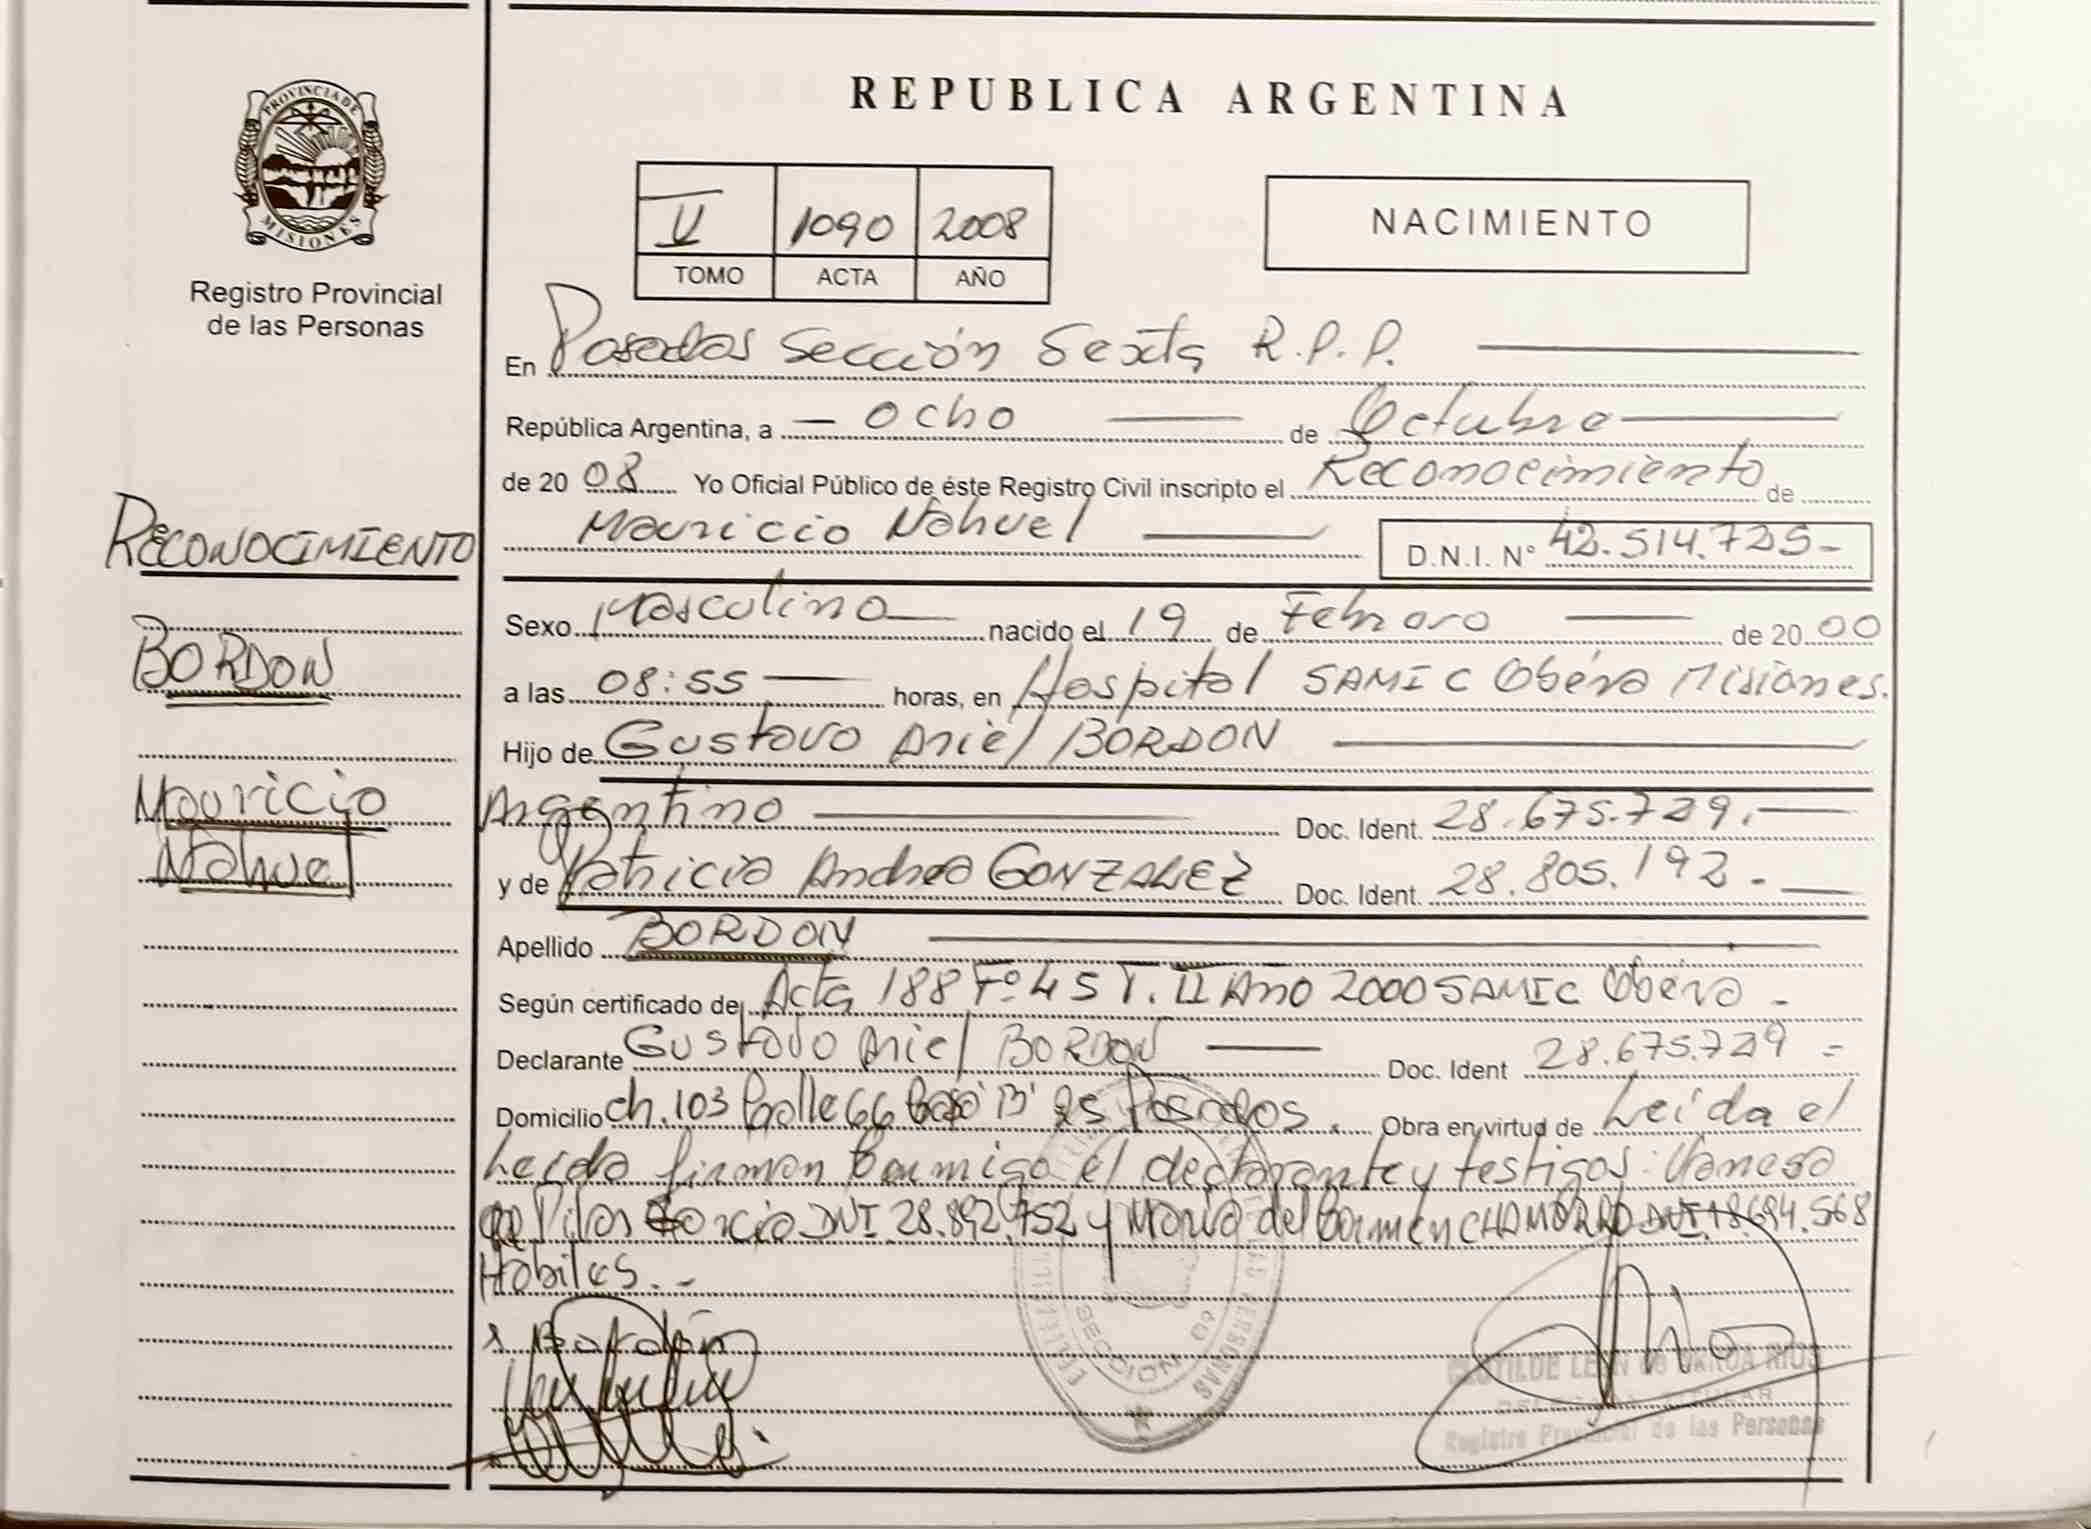 PROVINCIA DE
MISIONES
Registro Provincial
de las Personas
RECONOCIMIENTO
BORDON
Mauricio
Nahuel
REPUBLICA ARGENTINA
V 1090 2008
TOMO ACTA AÑO
NACIMIENTO
En Posadas Sección Sexta R.P.P.
República Argentina, a - ocho de Octubre
de 2008 Yo Oficial Público de éste Registro Civil inscripto el Reconocimiento de
Mauricio Nahuel D.N.I. N° 42.514.725-
Sexo Masculino nacido el 19 de Febrero de 2000
a las 08:55 horas, en Hospital SAMIC Oberá Misiones.
Hijo de Gustavo Ariel BORDON
Argentino Doc. Ident. 28.675.729.
y de Patricia Andrea GONZALEZ Doc. Ident. 28.805.192.-
Apellido BORDON
Según certificado de Acta 188 Fº 45 T. II Año 2000 SAMIC Oberá -
Declarante Gustavo Ariel BORDON Doc. Ident 28.675.729 =
Domicilio ch. 103 Calle 66 Posadas. Obra en virtud de Leída el
Leída firman Conmigo el declarante y testigos: Vanesa
del Pilar García DNI. 28.892.752 y María del Carmen CHAMORRO DNI. 18.694.568
Hábiles.-
Bordón
SECCION 6ª
PERSONAS
CLOTILDE
TITULAR
Registro Provincial de las Personas